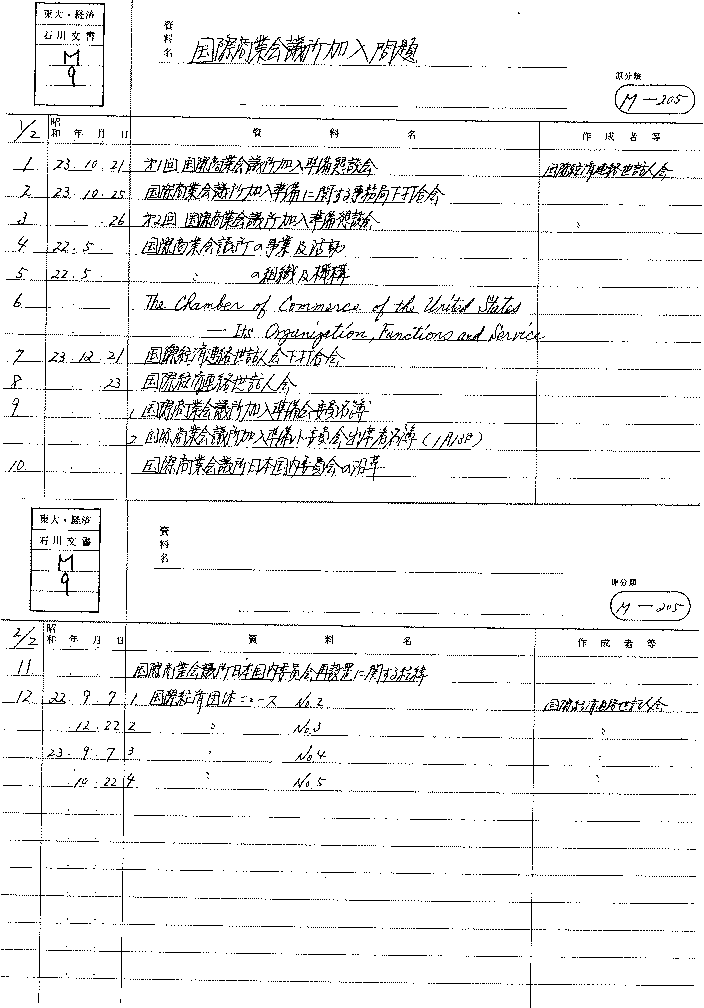 東大・経済
石川文書
M
9
資料名
国際商業会議所加入問題
原分類
M-205
1/2 昭和 年 月 日 資料名 作成者等
1 23.10.21 第1回国際商業会議所加入準備懇談会 国際経済連絡世話人会
2 23.10.25 国際商業会議所加入準備に関する事務局下打合会
3 26 第2回国際商業会議所加入準備懇談会 〃
4 22.5. 国際商業会議所の事業及活動
5 22.5 〃 の組織及機構
6 The Chamber of Commerce of the United States
— Its Organization, Functions and Service
7 23.12.21 国際経済連絡世話人会下打合会
8 23 国際経済連絡世話人会
9 1 国際商業会議所加入準備会委員名簿
2 国際商業会議所加入準備小委員会出席者名簿
10 国際商業会議所日本国内委員会の沿革
東大・経済
石川文書
M
9
資料名
原分類
M-205
2/2 昭和 年 月 日 資料名 作成者等
11 国際商業会議所日本国内委員会再設置に関する経緯
12 22.9.7 1 国際経済団体ニュース No.2 国際経済連絡世話人会
12.22 2 〃 No.3 〃
23.9.7 3 〃 No.4 〃
10.22 4 〃 No.5 〃